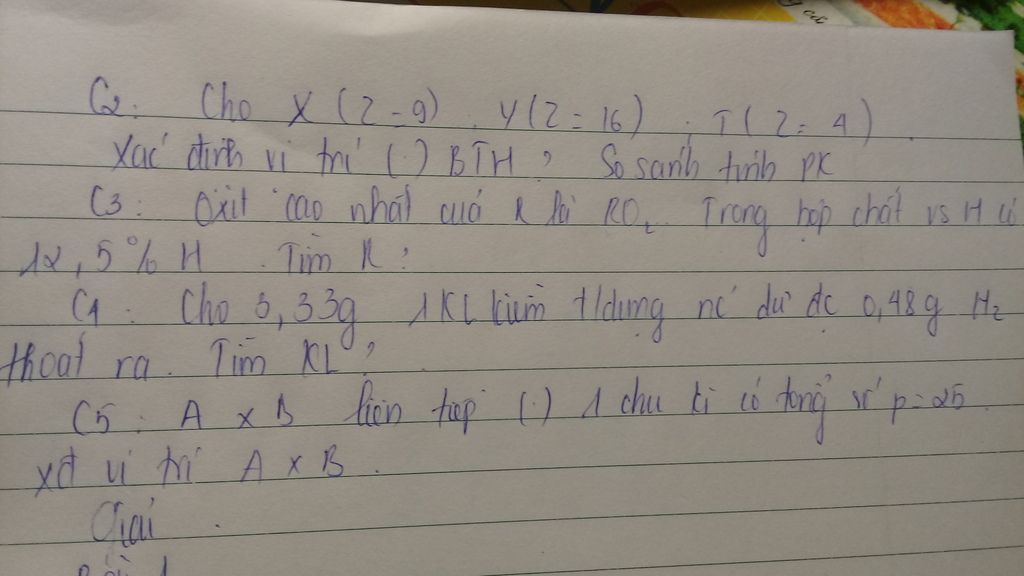 C2. Cho X (Z = 9). Y (Z = 16). T (Z = 4).
Xác định vị trí (.) BTH? So sánh tính PK
C3: Oxit cao nhất của R là RO₂. Trong hợp chất vs H có
12,5% H. Tìm R?
C4: Cho 3,33g 1 KL kiềm t/dụng nc dư đc 0,48g H₂
thoát ra. Tìm KL?
C5: A x B liên tiếp (.) 1 chu kì có tổng số p = 25.
xđ vị trí A x B.
Giải.